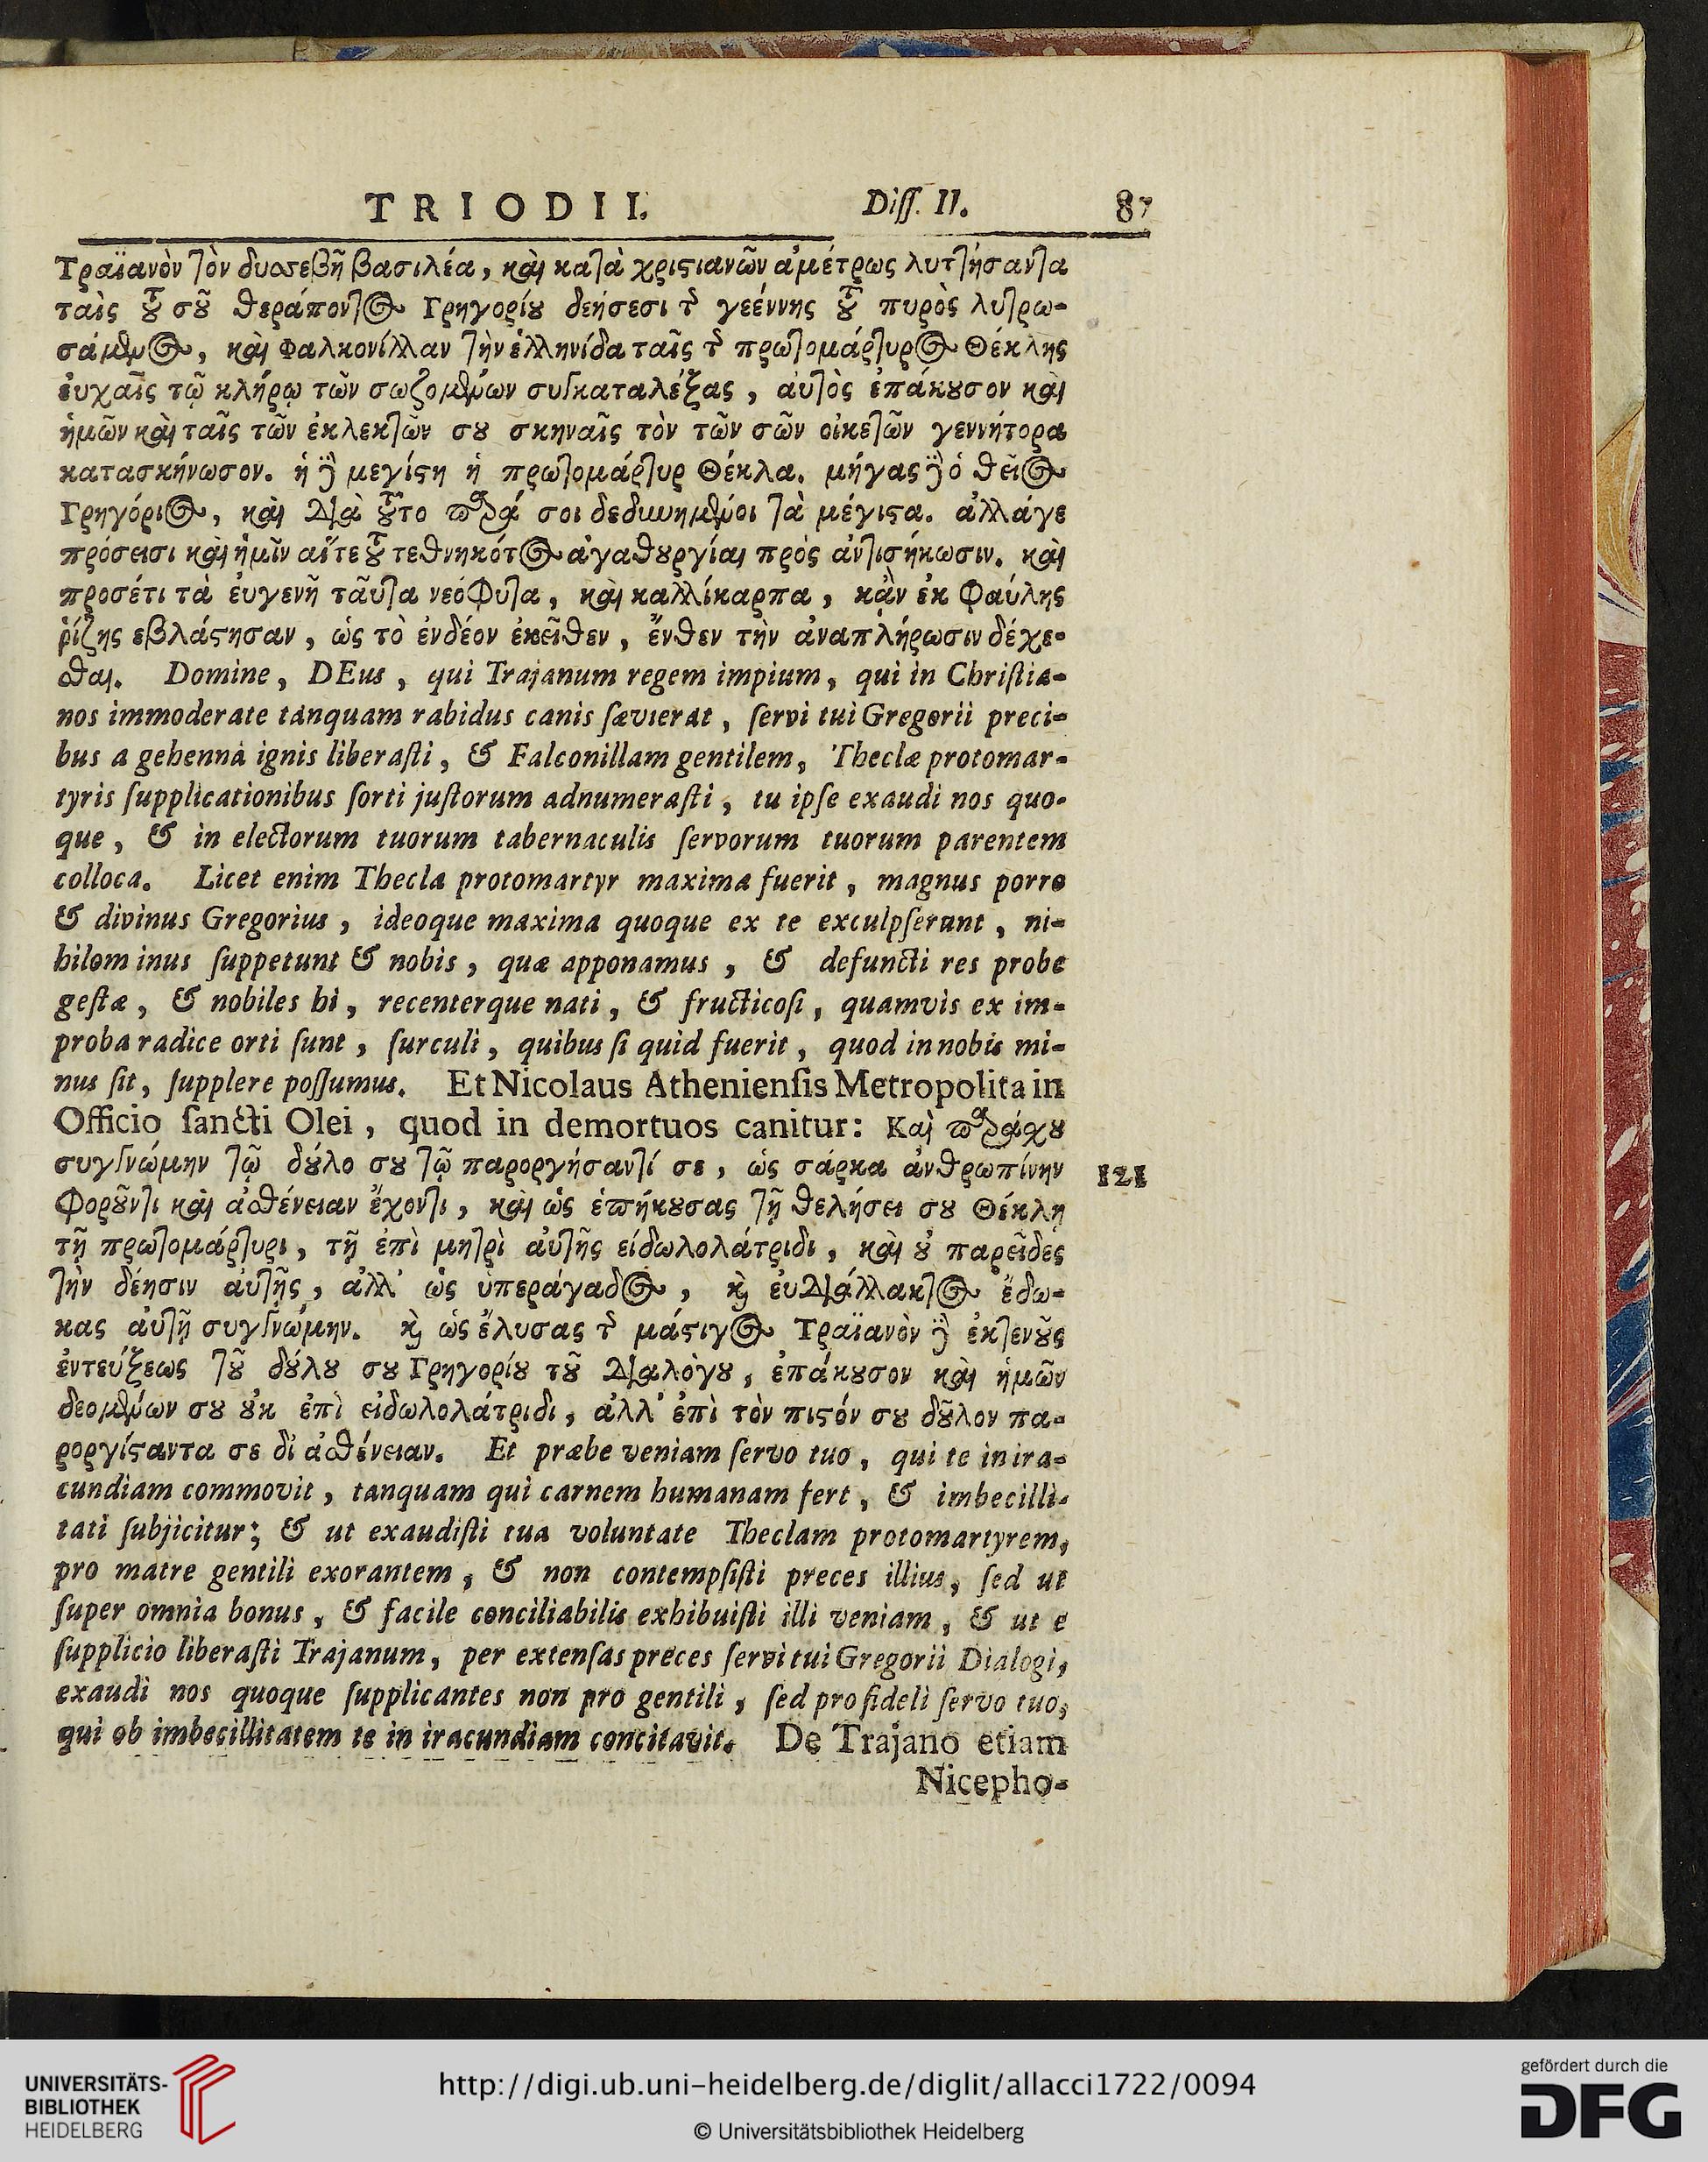 TRIODII. Diſſ. II. 87
Τραϊανὸν τὸν δυσσεβῆ βασιλέα, καὶ κατὰ χριστιανῶν ἀμέτρως λυττήσαντα
ταὶς τοῦ σοῦ θεράποντος Γρηγορίου δεήσεσι τῆς γεέννης τοῦ πυρὸς λυτρω-
σάμενος, καὶ Φαλκονίλλαν τὴν ἑλληνίδα ταῖς τῆς πρωτομάρτυρος Θέκλης
ἐυχαῖς τῷ κλήρῳ τῶν σωζομένων συγκαταλέξας, ἀυτὸς ἐπάκουσον καὶ
ἡμῶν καὶ ταῖς τῶν ἐκλεκτῶν σου σκηναῖς τὸν τῶν σῶν οἰκετῶν γεννήτορα
κατασκήνωσον. ἡ γὰρ μεγίστη ἡ πρωτομάρτυρ Θέκλα. μήγας γὰρ ὁ θεῖος
Γρηγόριος, καὶ διὰ τοῦτο παρά σοι δεδυνημένοι τὰ μέγιστα. ἀλλάγε
πρόσεισι καὶ ἡμῖν αἵτε τοῦ τεθνηκότος ἀγαθουργίαι πρὸς ἀντισήκωσιν. καὶ
προσέτι τὰ ἐυγενῆ ταῦτα νεόφυτα, καὶ καλλίκαρπα, κᾂν ἐκ φαύλης
ῥίζης εβλάστησαν, ὡς τὸ ἐνδέον ἐκεῖθεν, ἔνθεν τὴν ἀναπλήρωσιν δέχε-
σθαι. Domine, DEus, qui Trajanum regem impium, qui in Chriſtia-
nos immoderate tanquam rabidus canis ſævierat, ſervi tui Gregorii preci-
bus a gehennà ignis liberaſti, & Falconillam gentilem, Theclæ protomar-
tyris ſupplicationibus ſorti juſtorum adnumeraſti, tu ipſe exaudi nos quo-
que, & in electorum tuorum tabernaculis ſervorum tuorum parentem
colloca. Licet enim Thecla protomartyr maxima fuerit, magnus porro
& divinus Gregorius, ideoque maxima quoque ex te exculpſerunt, ni-
hilom inus ſuppetunt & nobis, quæ apponamus, & defuncti res probe
geſtæ, & nobiles hi, recenterque nati, & fructicoſi, quamvis ex im-
proba radice orti ſunt, ſurculi, quibus ſi quid fuerit, quod in nobis mi-
nus ſit, ſupplere poſſumus. Et Nicolaus Athenienſis Metropolita in
Officio ſancti Olei, quod in demortuos canitur: Καὶ παράχου
συγγνώμην τῷ δούλο σου τῷ παροργήσαντί σε, ὡς σάρκα ἀνθρωπίνην 121
φοροῦντι καὶ ἀσθένειαν ἔχοντι, καὶ ὡς ἐπήκουσας τῇ θελήσει σου Θέκλῃ
τῇ πρωτομάρτυρι, τῇ ἐπὶ μητρὶ ἀυτῆς εἰδωλολάτριδι, καὶ οὐ παρεῖδες
τὴν δέησιν αὐτῆς, ἀλλ' ὡς ὑπεράγαδος, καὶ ἐυδιάλλακτος ἔδω-
κας ἀυτῇ συγγνώμην. καὶ ὡς ἔλυσας τῆς μάστιγος Τραϊανὸν γὰρ ἐκτενοῦς
ἐντεύξεως τοῦ δούλου σου Γρηγορίου τοῦ διαλόγου, ἐπάκουσον καὶ ἡμῶν
δεομένων σου οὐκ ἐπὶ εἰδωλολάτριδι, ἀλλ' ἐπὶ τὸν πιστόν σου δοῦλον πα-
ροργίσαντα σε δι ἀσθένειαν. Et præbe veniam ſervo tuo, qui te in ira-
cundiam commovit, tanquam qui carnem humanam fert, & imbecilli-
tati ſubjicitur; & ut exaudiſti tua voluntate Theclam protomartyrem,
pro matre gentili exorantem, & non contempſiſti preces illius, ſed ut
ſuper omnia bonus, & facile conciliabilis exhibuiſti illi veniam, & ut e
ſupplicio liberaſti Trajanum, per extenſas preces ſervi tui Gregorii Dialogi,
exaudi nos quoque ſupplicantes non pro gentili, ſed pro fideli ſervo tuo,
qui ob imbecillitatem te in iracundiam concitavit. De Trajano etiam
Nicepho-
UNIVERSITÄTS-
BIBLIOTHEK
HEIDELBERG
http://digi.ub.uni-heidelberg.de/diglit/allacci1722/0094
© Universitätsbibliothek Heidelberg
gefördert durch die
DFG